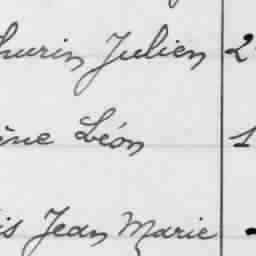 hurin Julien 2
ène Léon 1
is Jean Marie